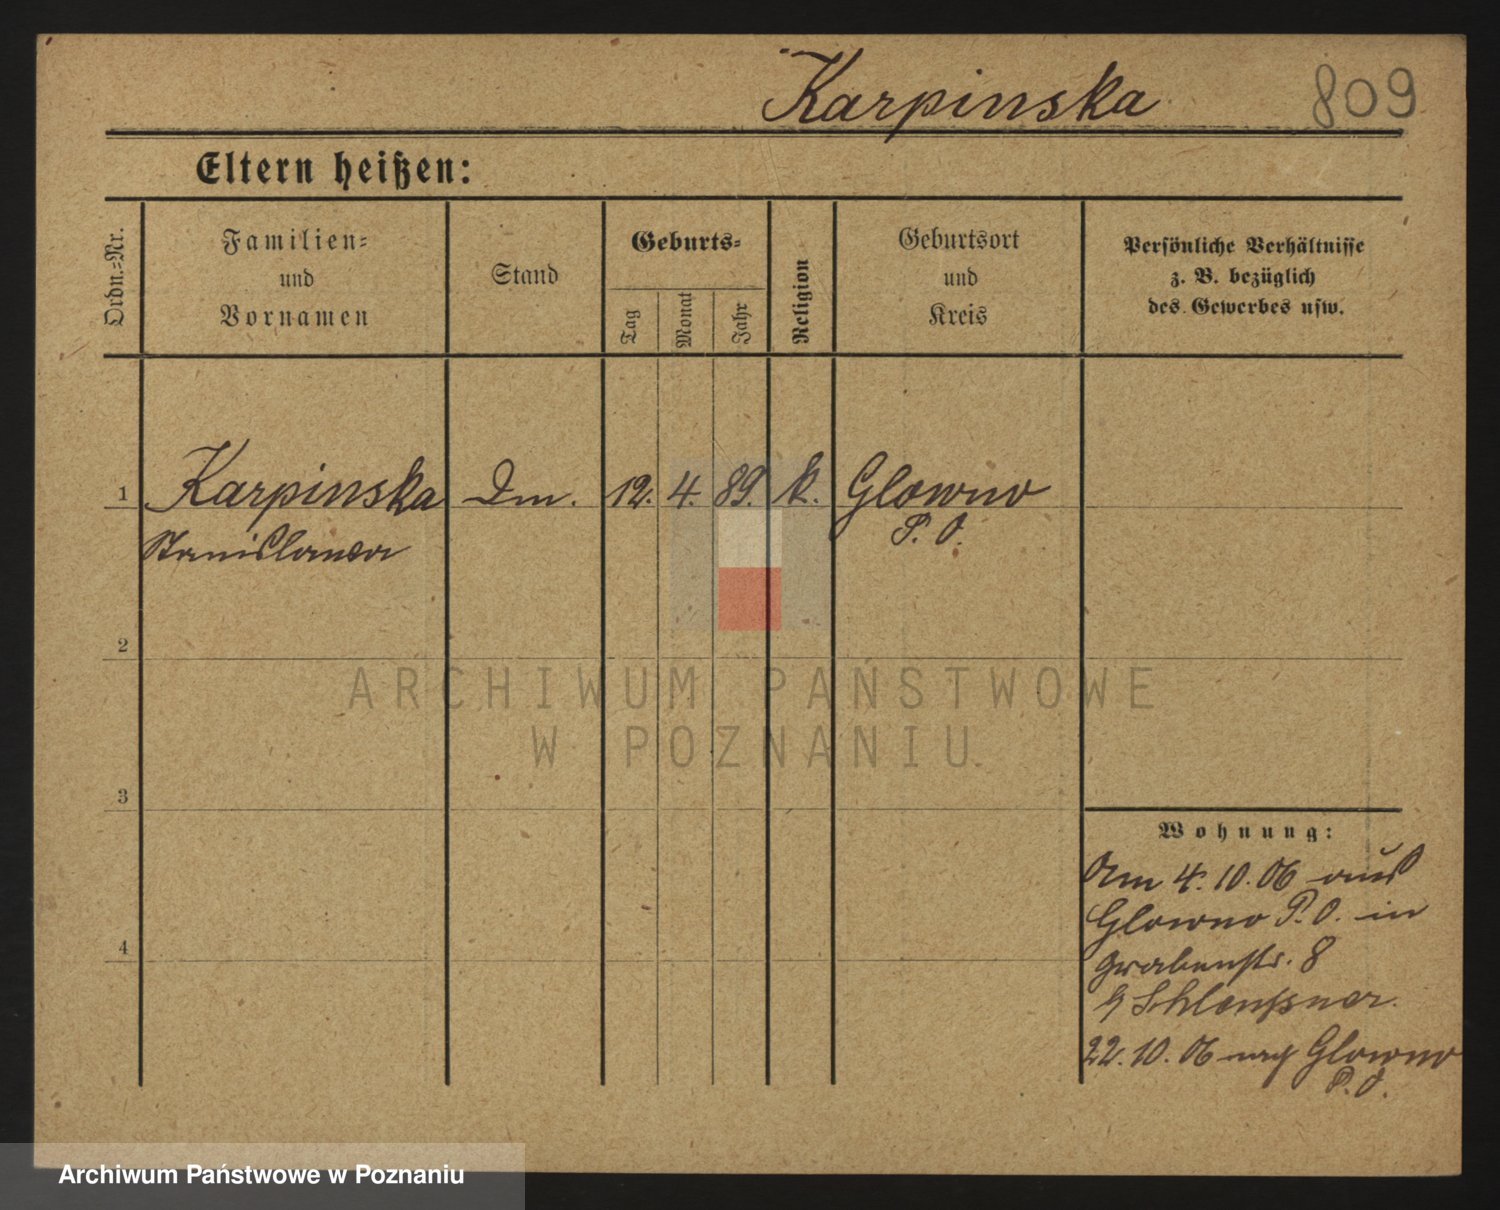 Karpinska 809
Eltern heißen:
Ordn.-Nr.
Familien-
und
Vornamen
Stand
Geburts-
Tag
Monat
Jahr
Religion
Geburtsort
und
Kreis
Persönliche Verhältnisse
z. B. bezüglich
des Gewerbes usw.
1 Karpinska Dm. 12. 4. 89. k. Glowno
Stanislawa P. O.
2
ARCHIWUM PAŃSTWOWE
W POZNANIU
3
Wohnung:
Am 4. 10. 06 aus
Glowno P. O. in
Grabenstr. 8
4
22. 10. 06 nach Glowno
P. O.
Archiwum Państwowe w Poznaniu